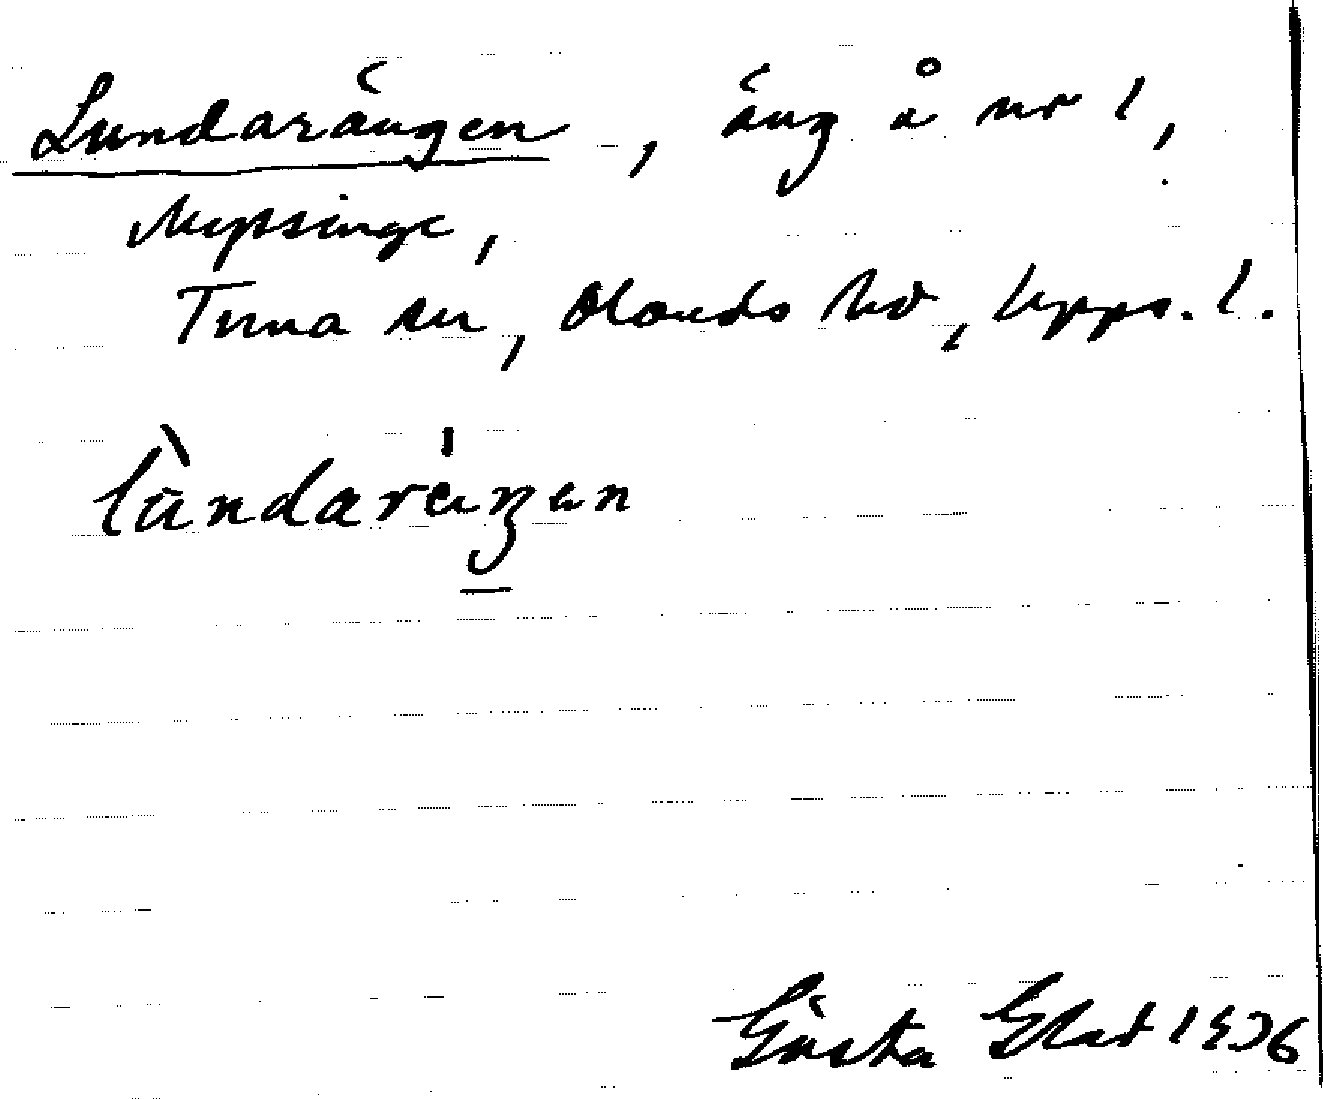 Lundarängen, äng å nr 1,
Mypsinge,
Tuna sn, Olands hd, Upps. l.
lùndaräŋen
Gösta Glad 1936